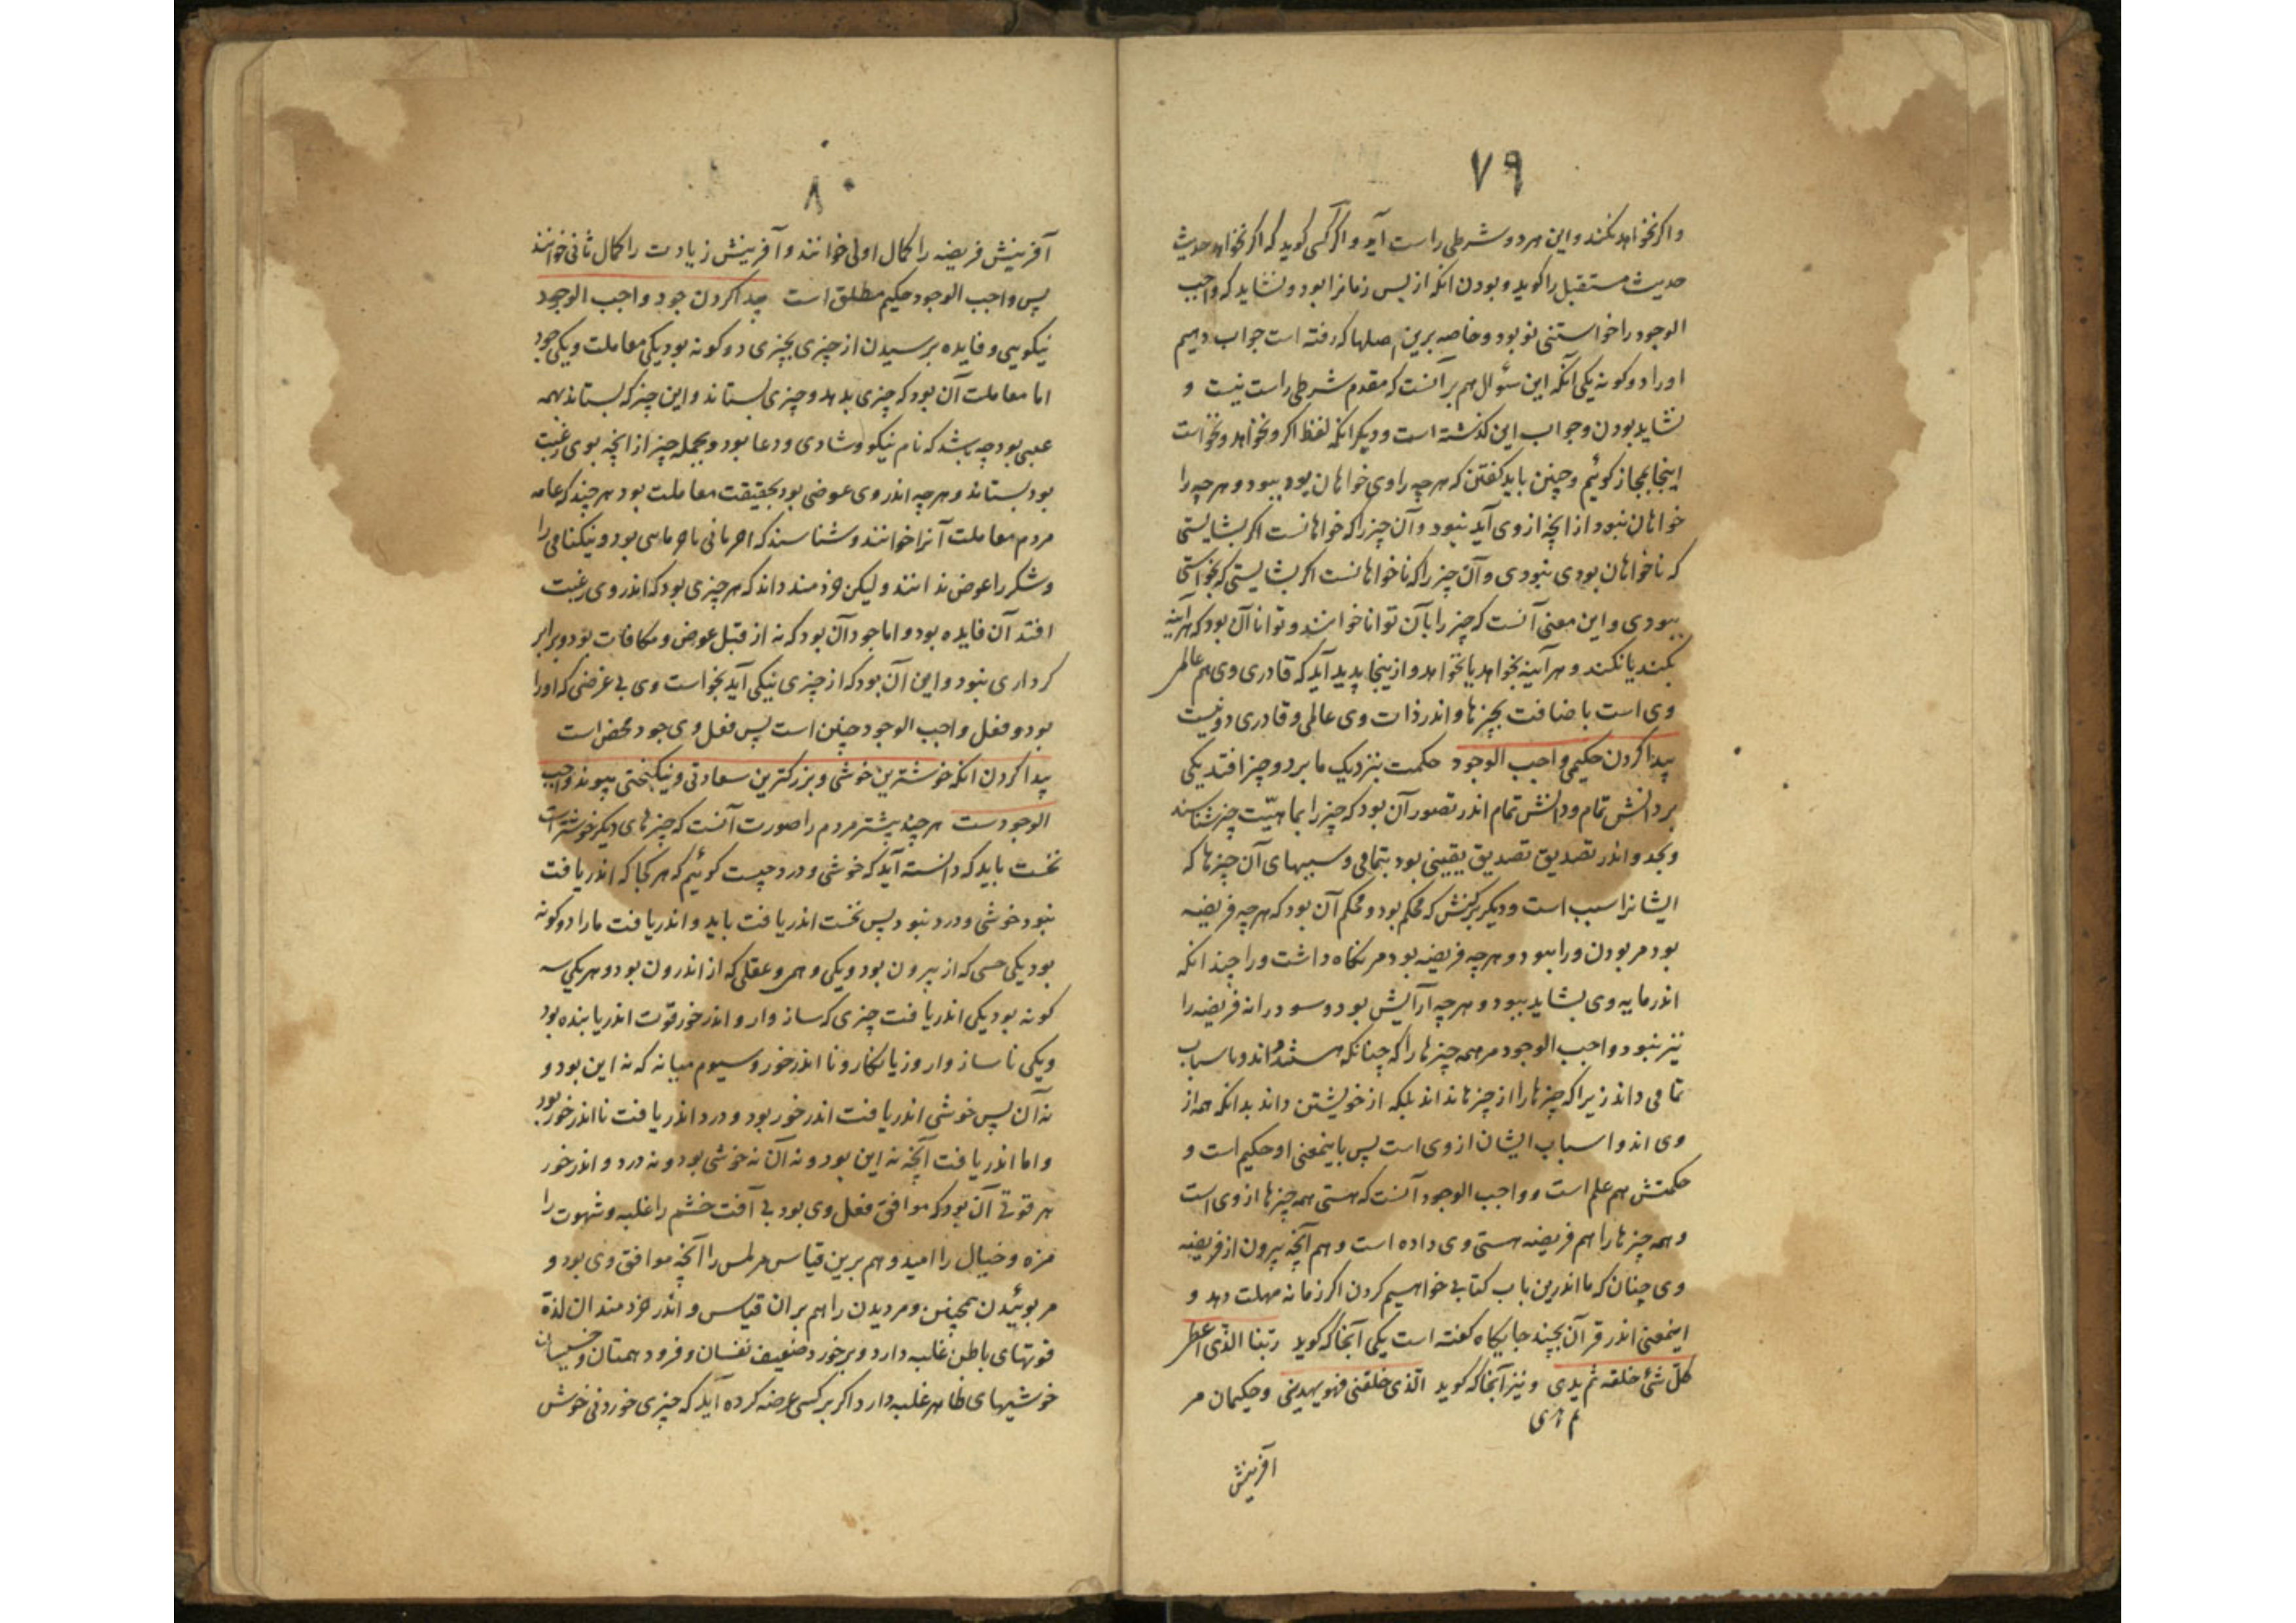 ۷۹
واکر نخواهد نکند و این هر دو شرطی راست آید و اکر کسی کوید که اکر نخواهد حدیث
حدیث مستقبل را کوید و بودن انکه از پس زمانرا بود و نشاید که واجب
الوجود را خواستنی نو بود و خاصه برین اصلها که رفته است جواب دهیم
اورا دو کونه یکی آنکه این سؤال هم بر آنست که مقدم شرطی راست نیست و
نشاید بودن و جواب این کذشته است و دیکر انکه لفظ اکر و نخواهد و نخواست
اینجا بمجاز کوئیم و چنین باید کفتن که هرچه را وی خواهان بود ببود و هرچه را
خواهان نبود از انچه از وی آید نبود و آن چیز را که خواهانست اکر بشایستی
که ناخواهان بودی نبودی و آن چیز را که ناخواهانست اکر بشایستی که بخواستی
ببودی و این معنی آنست که چیز را بآن توانا خوانند و توانا آن بود که هرآینه
بکند یا نکند و هرآینه بخواهد یا نخواهد و ازینجا پدید آید که قادری وی هم عالمی
وی است باضافت بچیزها و اندر ذات وی عالمی و قادری دو نیست
پیدا کردن حکیمی واجب الوجود حکمت بنزدیک ما بر دو چیز افتد یکی
بر دانش تمام و دانش تمام اندر تصور آن بود که چیز را بماهیّت چیز شناسند
و بحد و اندر تصدیق تصدیق یقینی بود بتمامی و سببهای آن چیزها که
ایشانرا سبب است و دیکر بر کنش که محکم بود و محکم آن بود که هرچه فریضه
بود مر بودن ورا ببود و هرچه فریضه بود مر نکاه داشت ورا چندانکه
اندر مایه وی بشاید ببود و هرچه آرایش بود و سود در انه فریضه را
نیز ببود و واجب الوجود مر همه چیزها را که چنانکه هستند داند و باسباب
تمامی داند زیرا که چیزها را از چیزها نداند بلکه از خویشتن داند بدانکه همه از
وی اند و اسباب ایشان از وی است پس باینمعنی او حکیم است و
حکمتش هم علم است و واجب الوجود آنست که هستی همه چیزها از وی است
و همه چیزها را هم فریضه هستی وی داده است و هم آنچه بیرون از فریضه
وی چنان که ما اندرین باب کتابی خواهیم کردن اکر زمانه مهلت دهد و
اینمعنی اندر قرآن بچند جایکاه کفته است یکی آنجا که کوید ربنا الذی اعطی
کل شئ خلقه ثم یدی و نیز آنجا که کوید الذی خلقنی فهو یهدینی و حکیمان مر
م هدی
آفرینش
۸۰
آفرینش فریضه را کمال اولی خوانند و آفرینش زیادت را کمال ثانی خوانند
پس واجب الوجود حکیم مطلق است پیدا کردن جود واجب الوجود
نیکویی و فایده برسیدن از چیزی بچیزی دو کونه بود یکی معاملت و یکی جود
اما معاملت آن بود که چیزی بدهد و چیزی بستاند و این چیز که بستاند همه
عینی بود چه باشد که نام نیکو و شادی و دعا بود و بجمله چیز از انچه بوی رغبت
بود بستاند و هرچه اندر وی عوضی بود بحقیقت معاملت بود هرچند که عامه
مردم معاملت آنرا خوانند و شناسند که بود و نیکنامی را
و شکر را عوض ندانند و لیکن خردمند داند که هر چیزی بود که اندر وی رغبت
افتد آن فایده بود و اما جود آن بود که نه از قبل عوض و مکافات بود و برابر
کرداری نبود و این آن بود که از چیزی نیکی آید بخواست وی بی غرضی که اورا
بود و فعل واجب الوجود چنین است پس فعل وی جود محض است
پیدا کردن انکه خوشترین خوشی و بزرکترین سعادتی و نیکبختی پیوند واجب
الوجودست هرچند بیشتر مردم را صورت آنست که چیزهای دیکر خوشتر است
نخست باید که دانسته آید که خوشی و درد چیست کوئیم که هر کجا که اندریافت
نبود خوشی و درد نبود پس نخست اندریافت باید و اندریافت مارا دو کونه
بود یکی حسی که از بیرون بود و یکی وهمی و عقلی که از اندرون بود و هر یکی سه
کونه بود یکی اندریافت چیزی که سازوار و اندرخور قوت اندریابنده بود
و یکی ناسازوار و زیانکار و نا اندرخور و سیوم میانه که نه این بود و
نه آن پس خوشی اندریافت اندرخور بود و درد اندریافت نااندرخور بود
و اما اندریافت آنچه نه این بود و نه آن نه خوشی بود و نه درد و اندرخور
هر قوتی آن بود که موافق فعل وی بود بی آفت خشم را غلبه و شهوت را
مزه و خیال را امید و هم برین قیاس مر لمس را آنچه موافق وی بود و
مر بوئیدن همچنین و مر دیدن را هم بران قیاس و اندر خردمندان لذة
قوتهای باطن غلبه دارد و بر خورد ضعیف نفسان و فرود همتان و خسیسان
خوشیهای ظاهر غلبه دارد اکر بر کسی عرضه کرده آید که چیزی خوردنی خوش